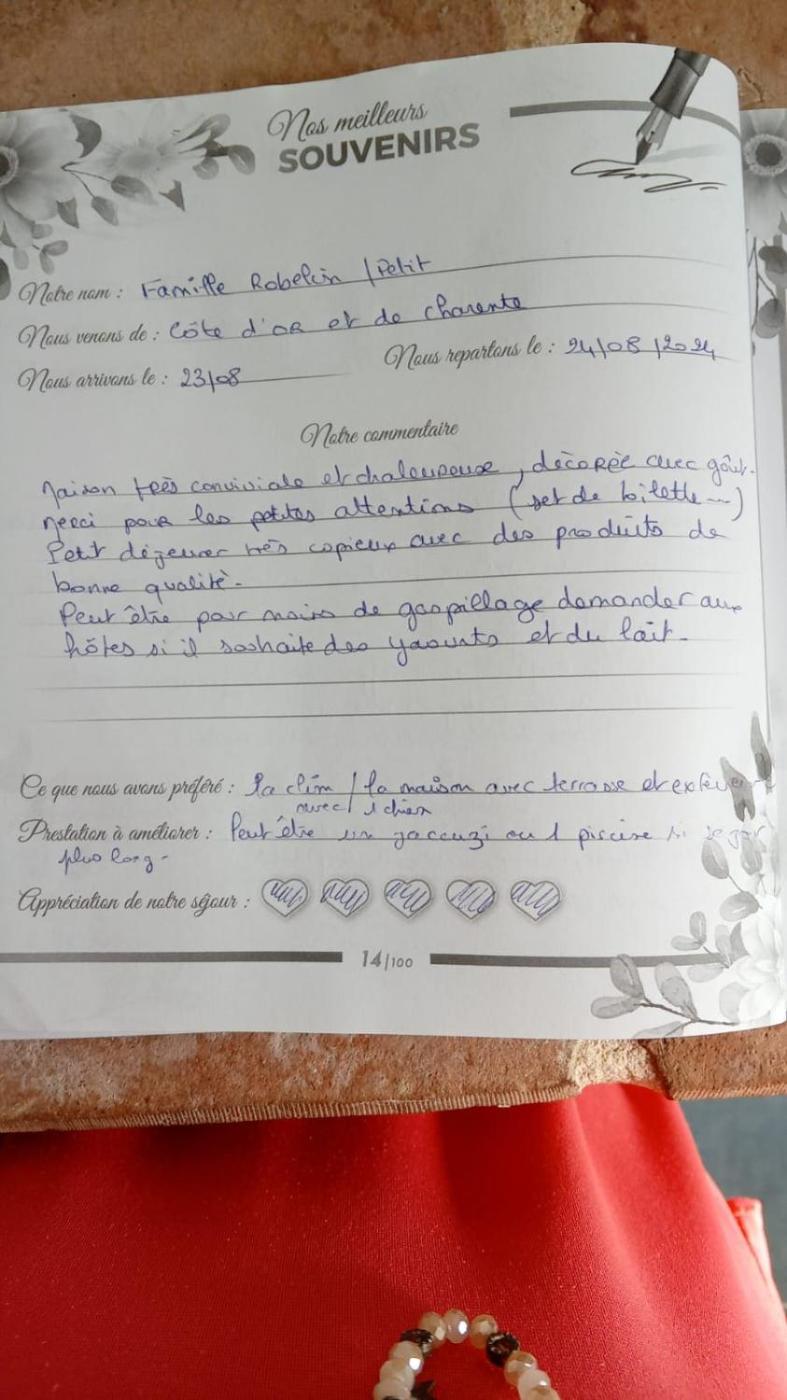 Nos meilleurs
SOUVENIRS
Notre nom : Famille Robelin / Petit
Nous venons de : Côte d'OR et de charente
Nous arrivons le : 23/08
Nous repartons le : 24/08/2024
Notre commentaire
Maison très conviviale et chaleureuse, décorée avec goût.
Merci pour les petites attentions (set de toilette ...)
Petit déjeuner très copieux avec des produits de
bonne qualité.
Peut être pour moins de gaspillage demander aux
hôtes si il souhaite des yaourts et du lait.
Ce que nous avons préféré : la clim / la maison avec terrasse et extérieur
avec 1 chien
Prestation à améliorer : Peut être un jaccuzi ou 1 piscine si
plus long.
Appréciation de notre séjour :
14/100